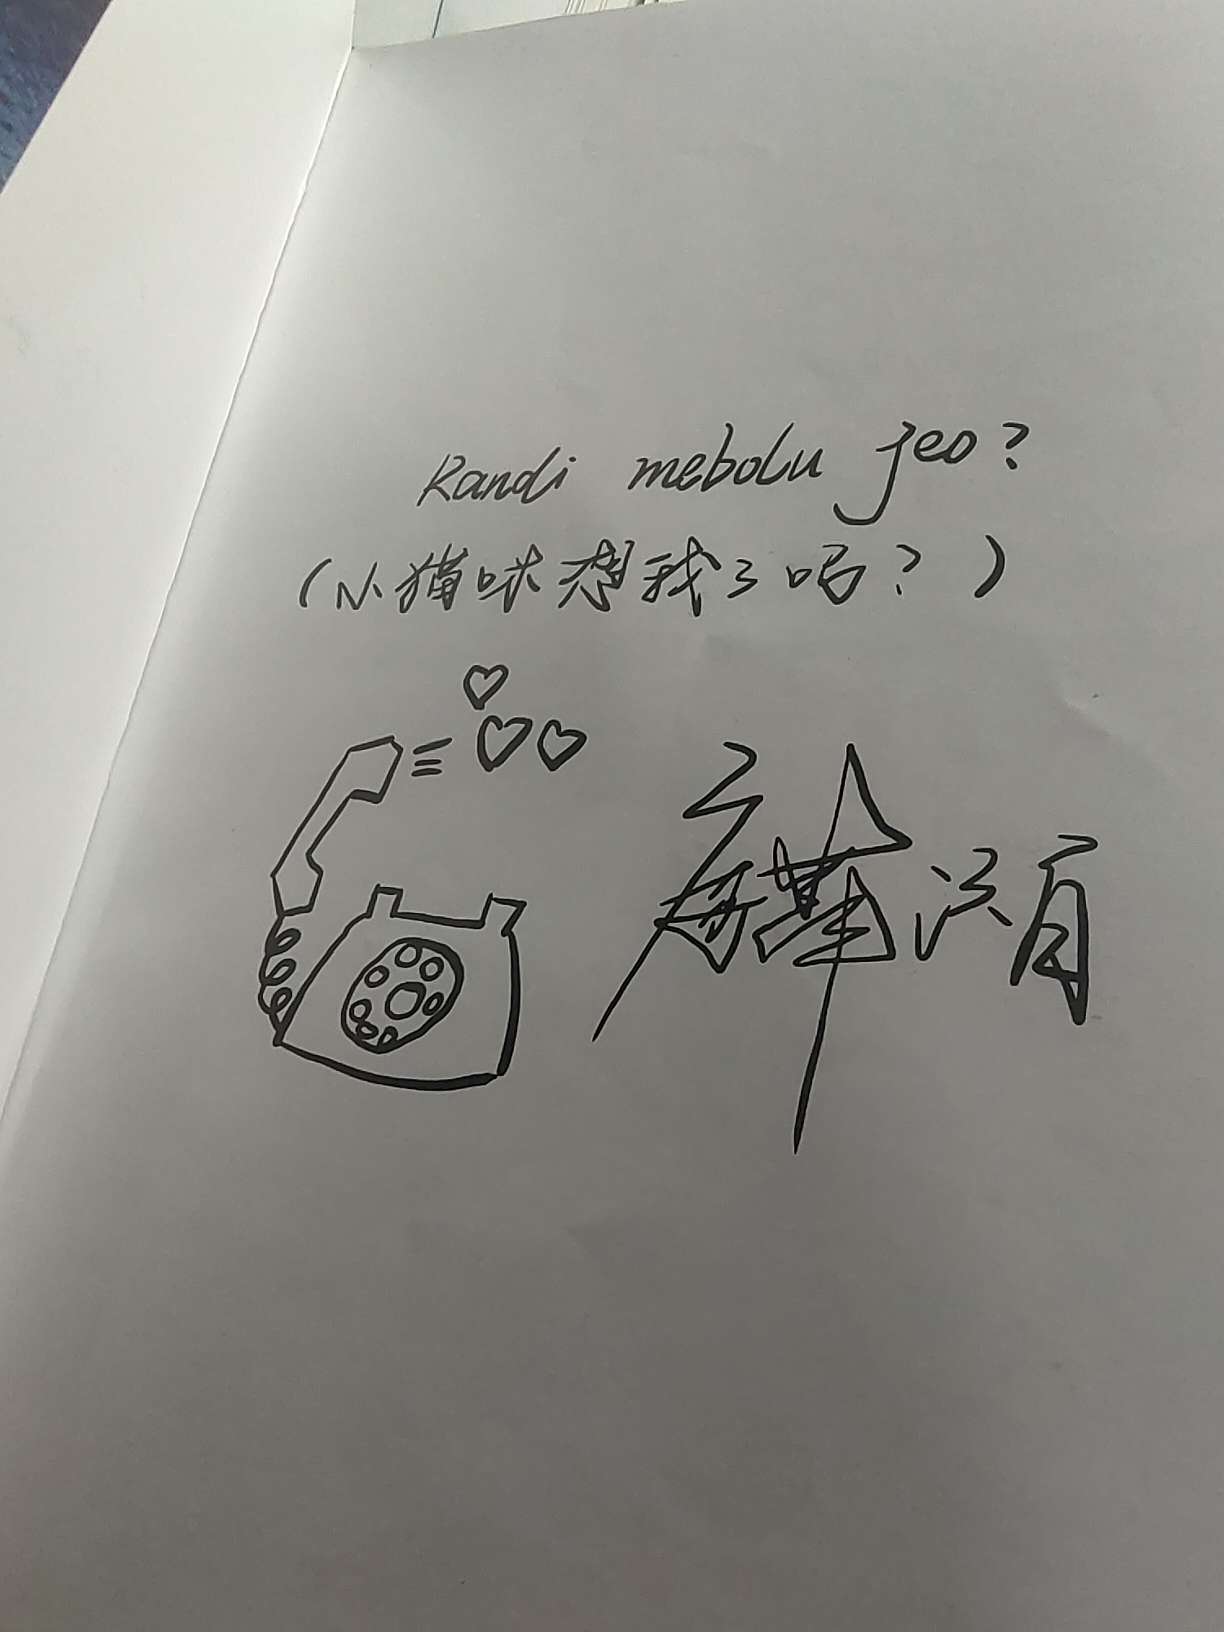 Kandi mebolu jeo?
(小猫咪想我了吗?)